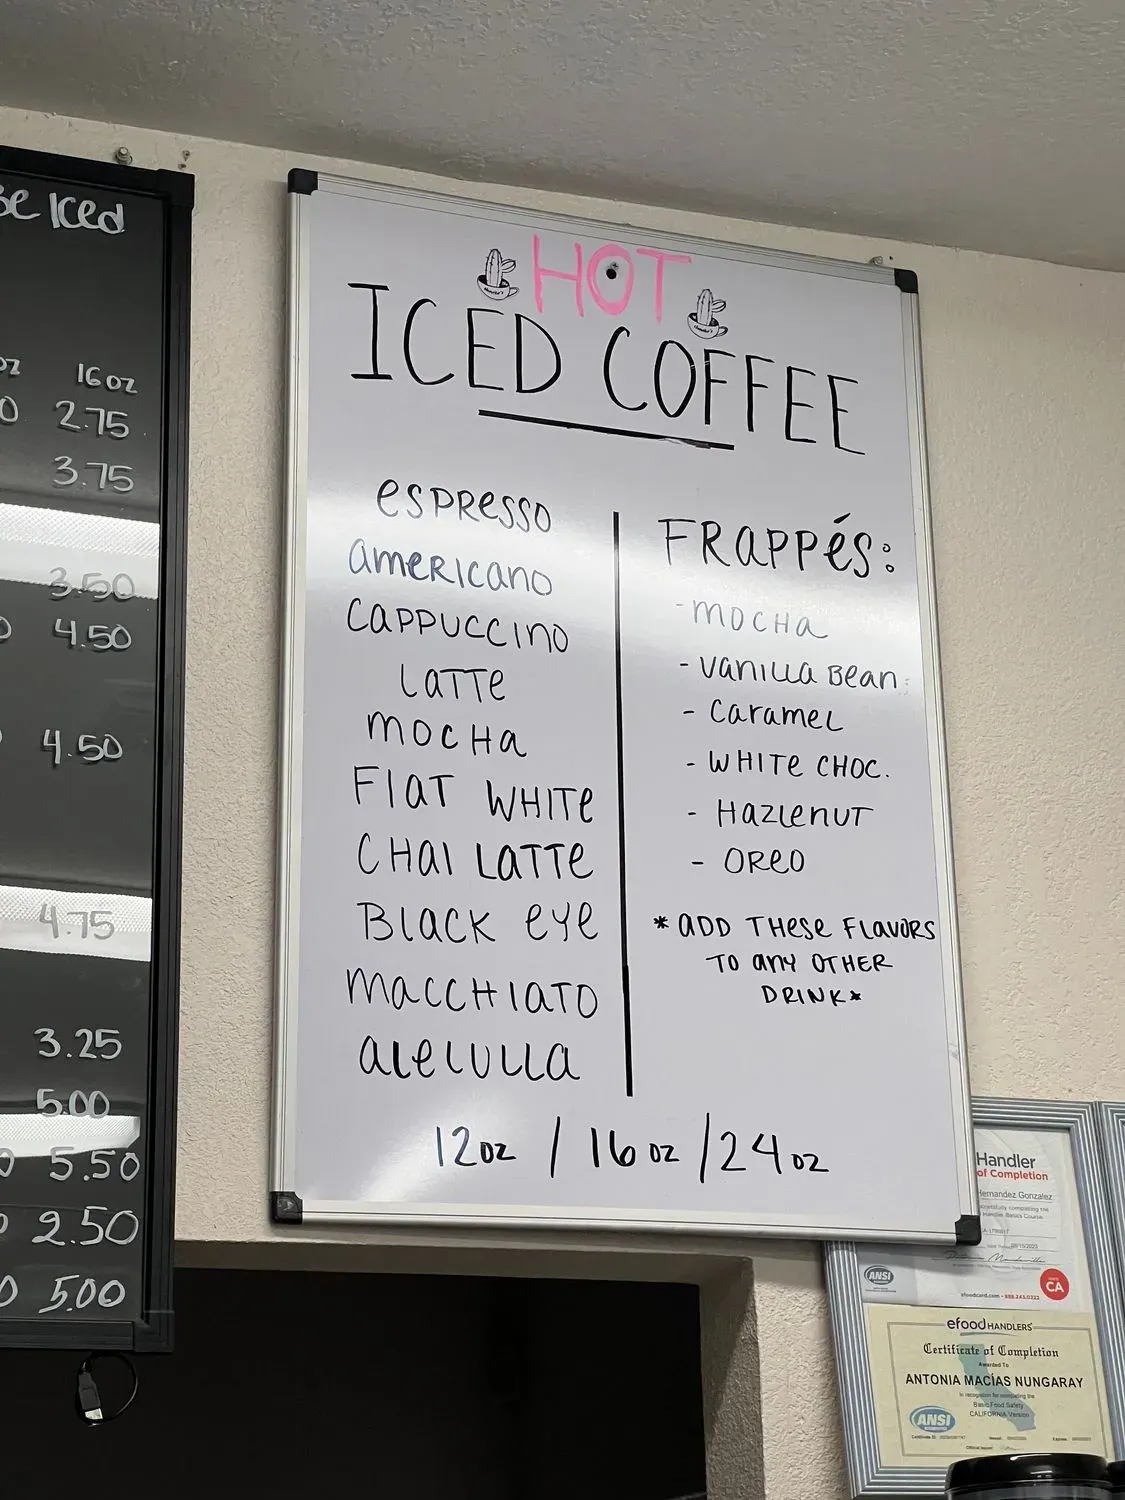 Iced
16oz
2.75
3.75
3.50
4.50
4.50
4.75
3.25
5.00
5.50
2.50
5.00
HOT
ICED COFFEE
espresso
americano
cappuccino
latte
mocha
flat white
chai latte
black eye
macchiato
alelulla
FRAPPÉS:
- mocha
- vanilla bean
- caramel
- white choc.
- hazlenut
- oreo
* ADD THESE FLAVORS
TO ANY OTHER
DRINK *
12oz / 16oz / 24oz
Handler
of Completion
Hernandez Gonzalez
ANSI
CA
efoodcard.com
efoodHANDLERS
Certificate of Completion
Awarded To
ANTONIA MACÍAS NUNGARAY
In recognition for completing the
Basic Food Safety
CALIFORNIA Version
ANSI